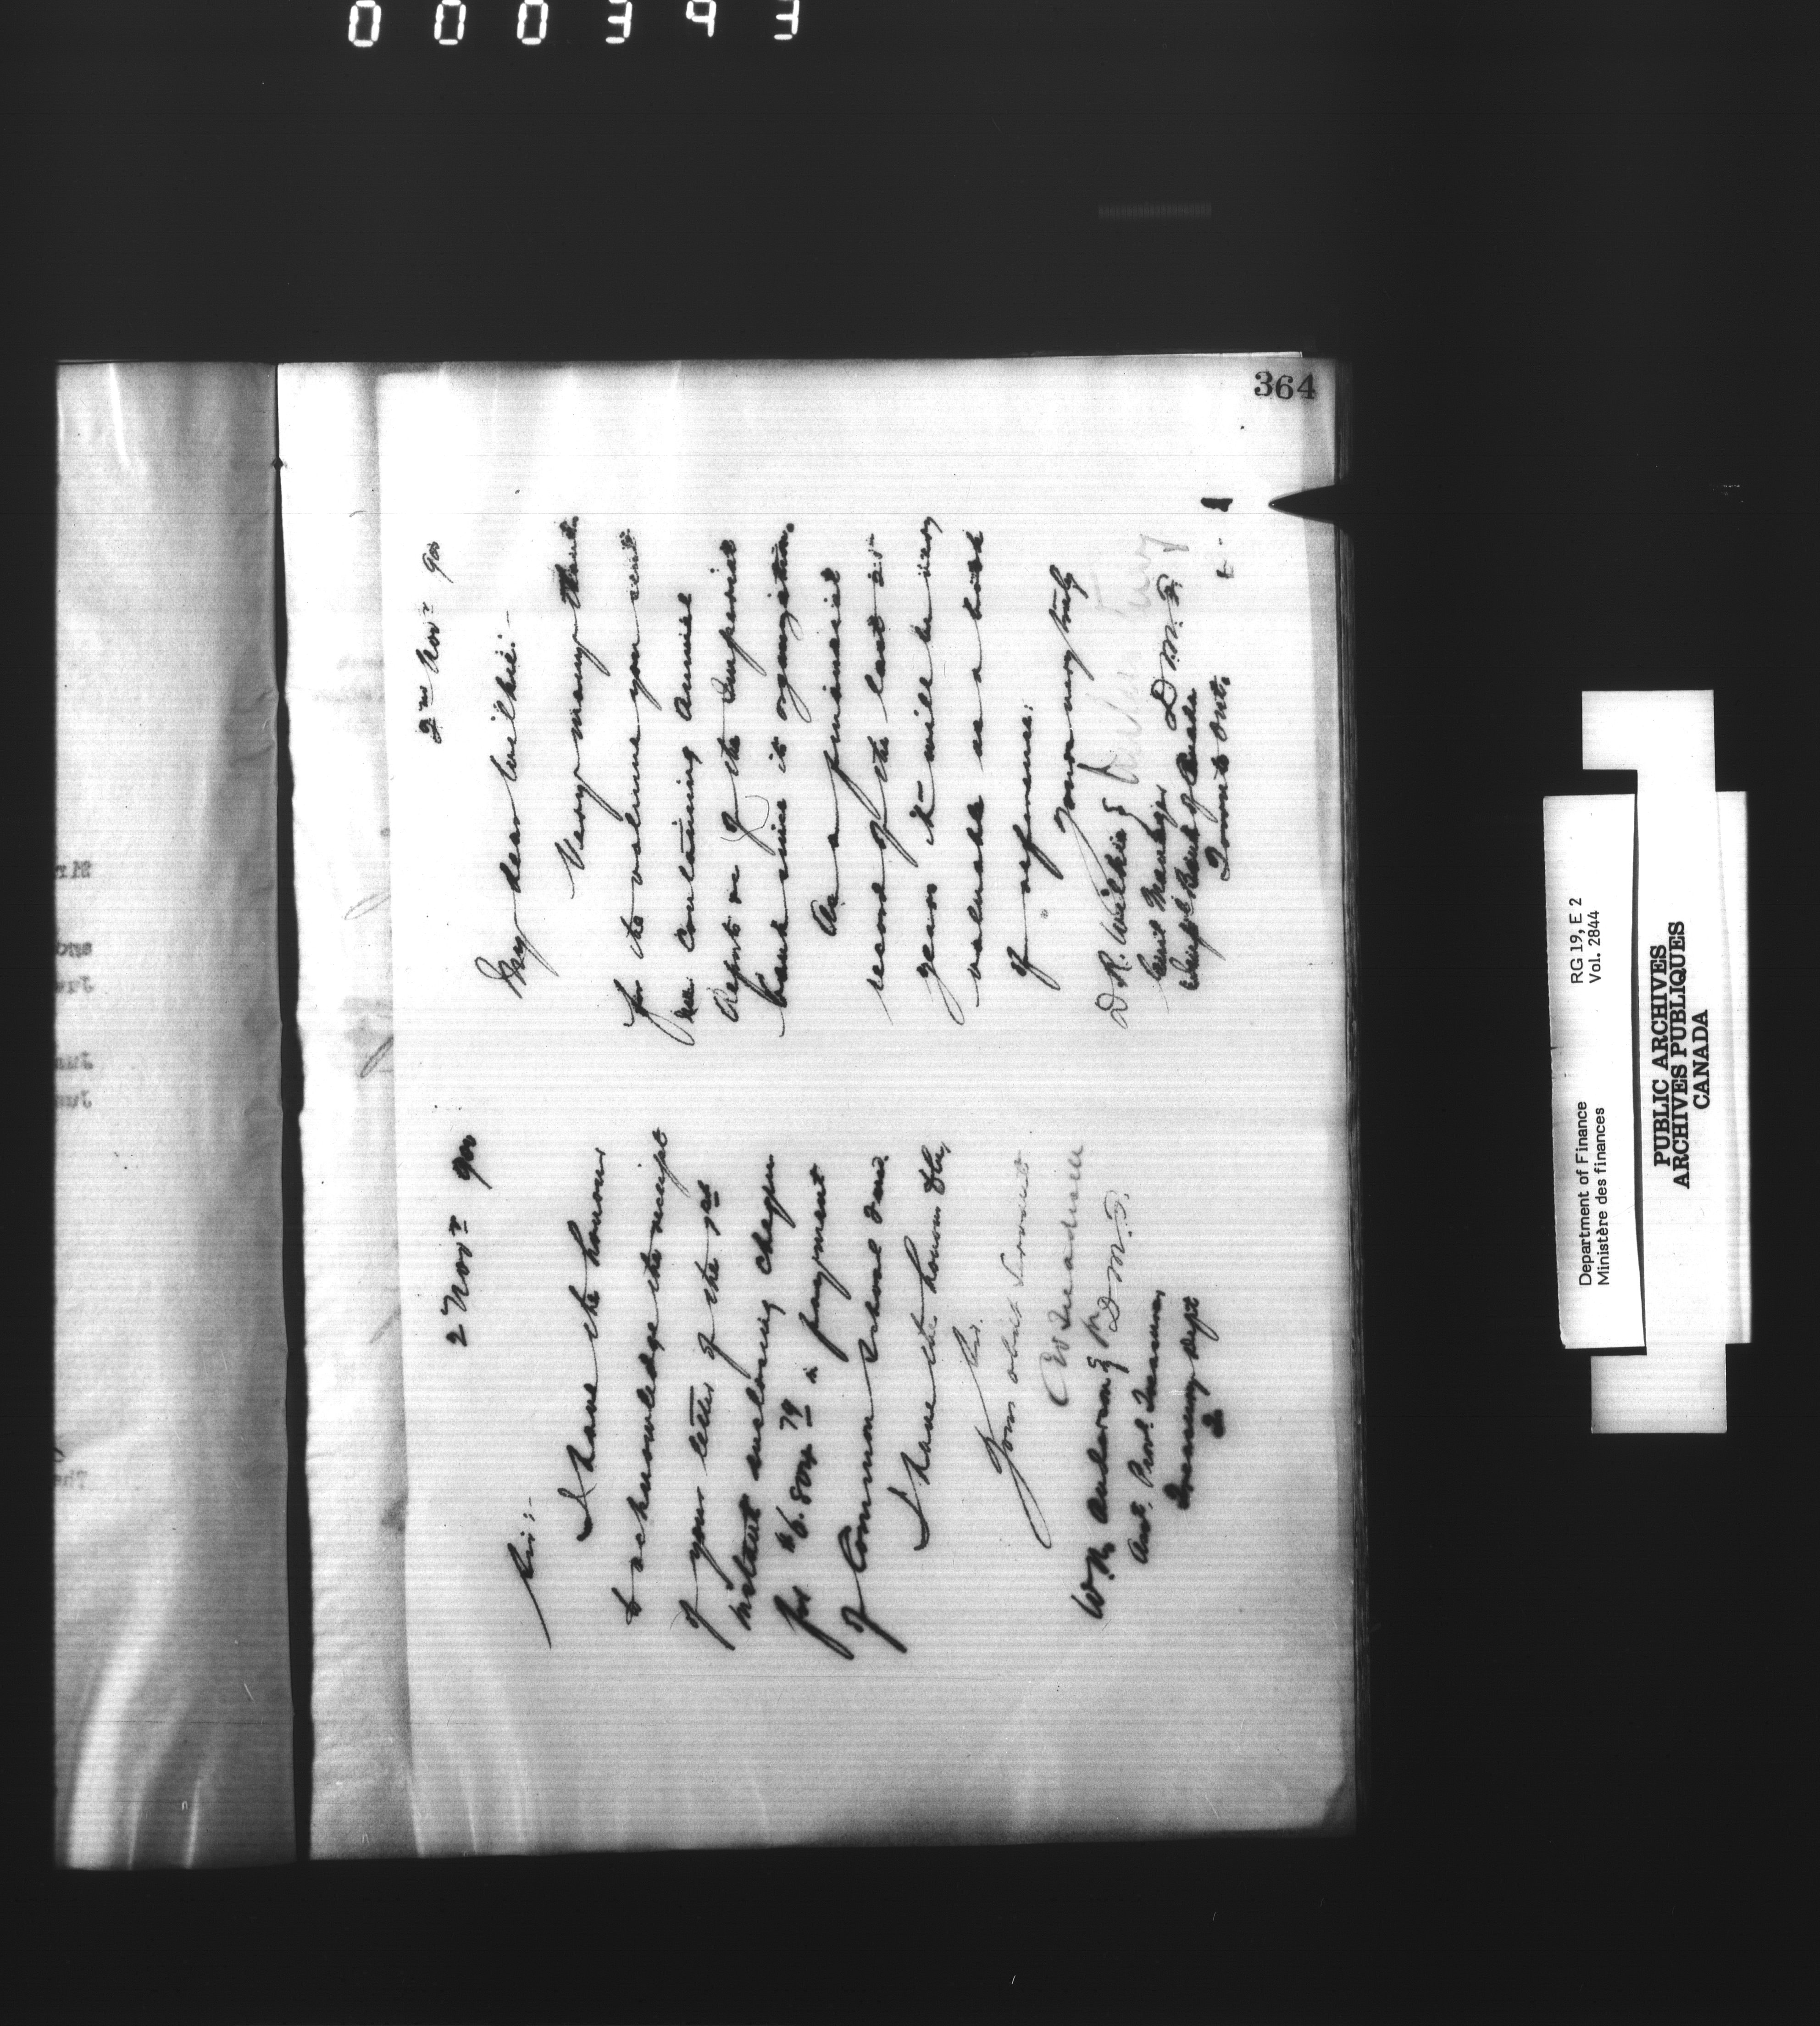 000343
364
2 Novr 900
Sir:-
I have the honour
to acknowledge the receipt
of your letter of the 1st
instant enclosing cheque
for $6.80 79 in payment
of Common School Fund.
I have the honour to be,
Sir,
Your obdt Servant
D.M.F.
W. R. Anderson Esq
Asst. Provl. Treasurer,
Treasury Dept
2nd Novr 900
My dear Wilkie:-
Very many thanks
for the volume you sent
me containing Annual
Reports of the Imperial
Bank since its organization.
As a financial
record of the last 25
years it will be very
valuable as a book
of reference.
Yours very truly
D. R. Wilkie Esq
D.M.F.
Genl Manager
Impl Bank of Canada
Toronto Ont.
Department of Finance
Ministère des finances
RG 19, E 2
Vol. 2844
PUBLIC ARCHIVES
ARCHIVES PUBLIQUES
CANADA